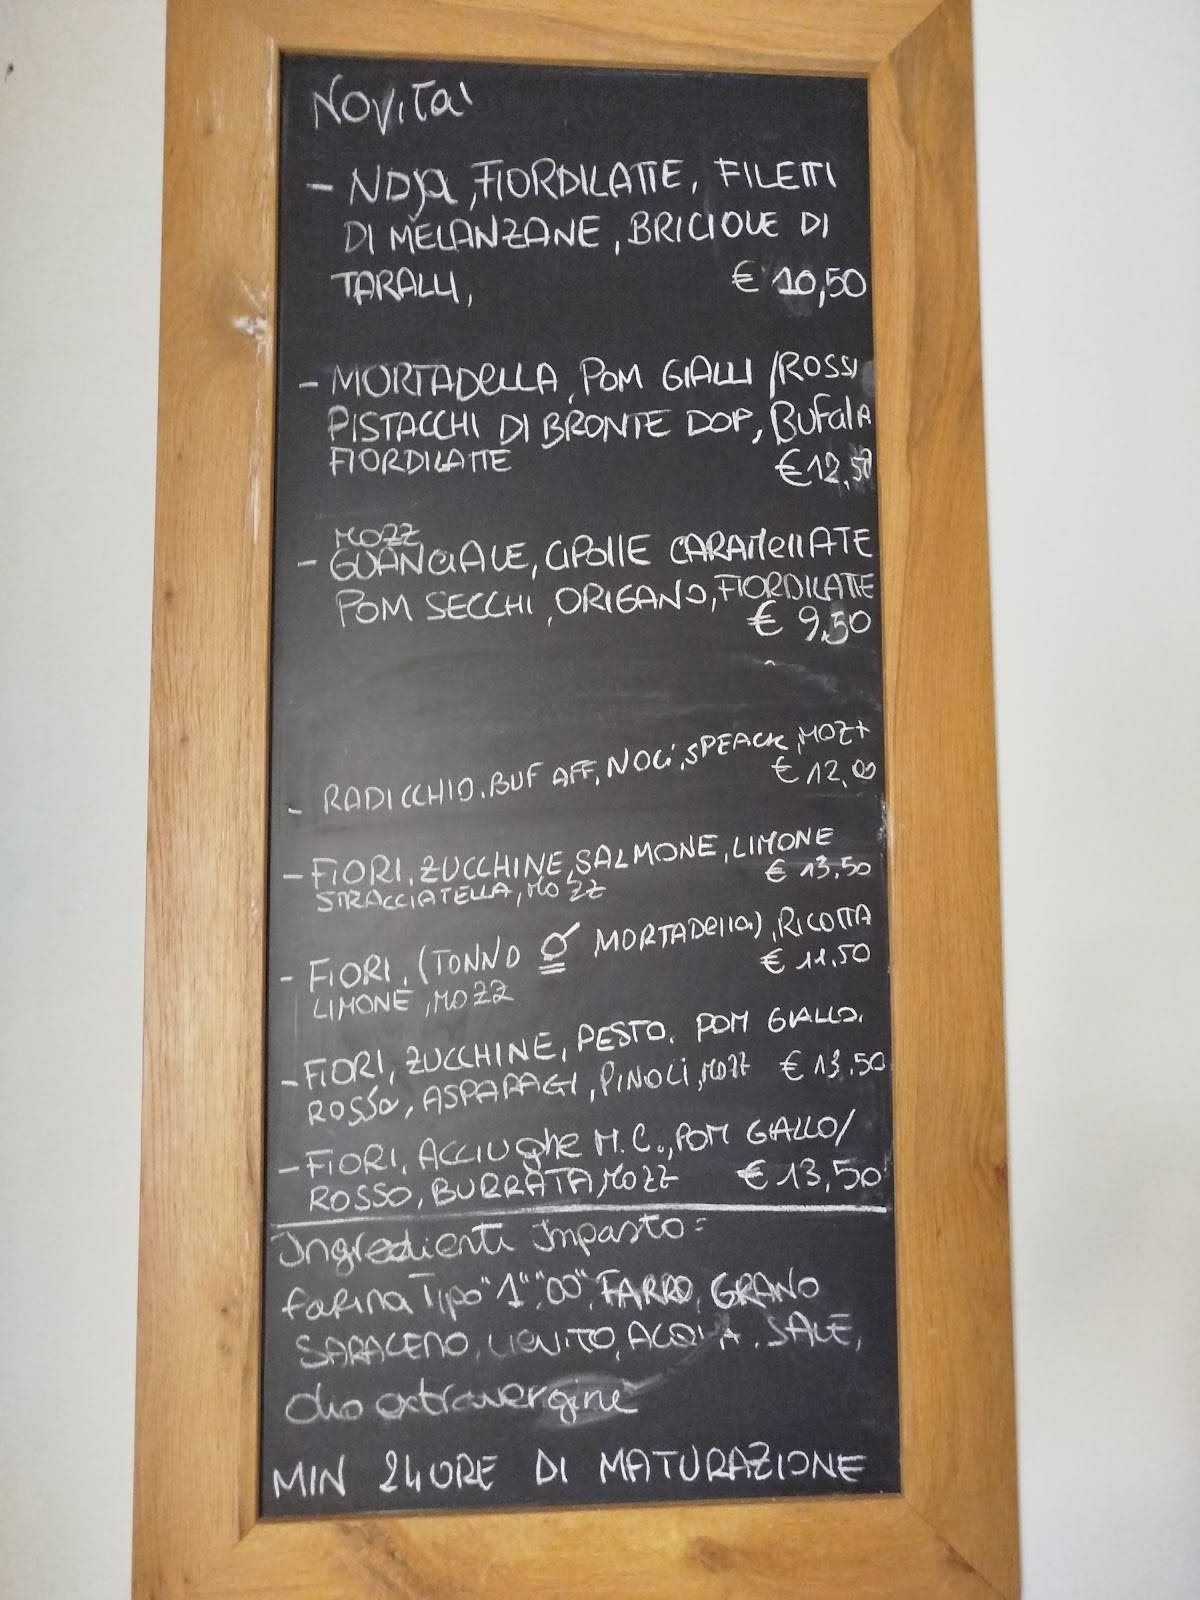 NOVITA'
- NDJA, FIORDILATTE, FILETTI
DI MELANZANE, BRICIOLE DI
TARALLI, € 10,50
- MORTADELLA, POM GIALLI/ROSSI
PISTACCHI DI BRONTE DOP, BUFALA
FIORDILATTE € 12,50
MOZZ
- GUANCIALE, CIPOLLE CARAMELLATE
POM SECCHI, ORIGANO, FIORDILATTE
€ 9,50
- RADICCHIO, BUF AFF, NOCI, SPEACK, MOZZ
€ 12,00
- FIORI, ZUCCHINE, SALMONE, LIMONE
STRACCIATELLA, MOZZ € 13,50
- FIORI, (TONNO O MORTADELLA), RICOTTA
LIMONE, MOZZ € 11,50
- FIORI, ZUCCHINE, PESTO, POM GIALLO,
ROSSO, ASPARAGI, PINOLI, MOZZ € 13,50
- FIORI, ACCIUGHE M.C., POM GIALLO/
ROSSO, BURRATA, MOZZ € 13,50
Ingredienti Impasto:
farina Tipo "1", "00", FARRO, GRANO
SARACENO, LIEVITO, ACQUA, SALE,
olio extravergine
MIN 24 ORE DI MATURAZIONE